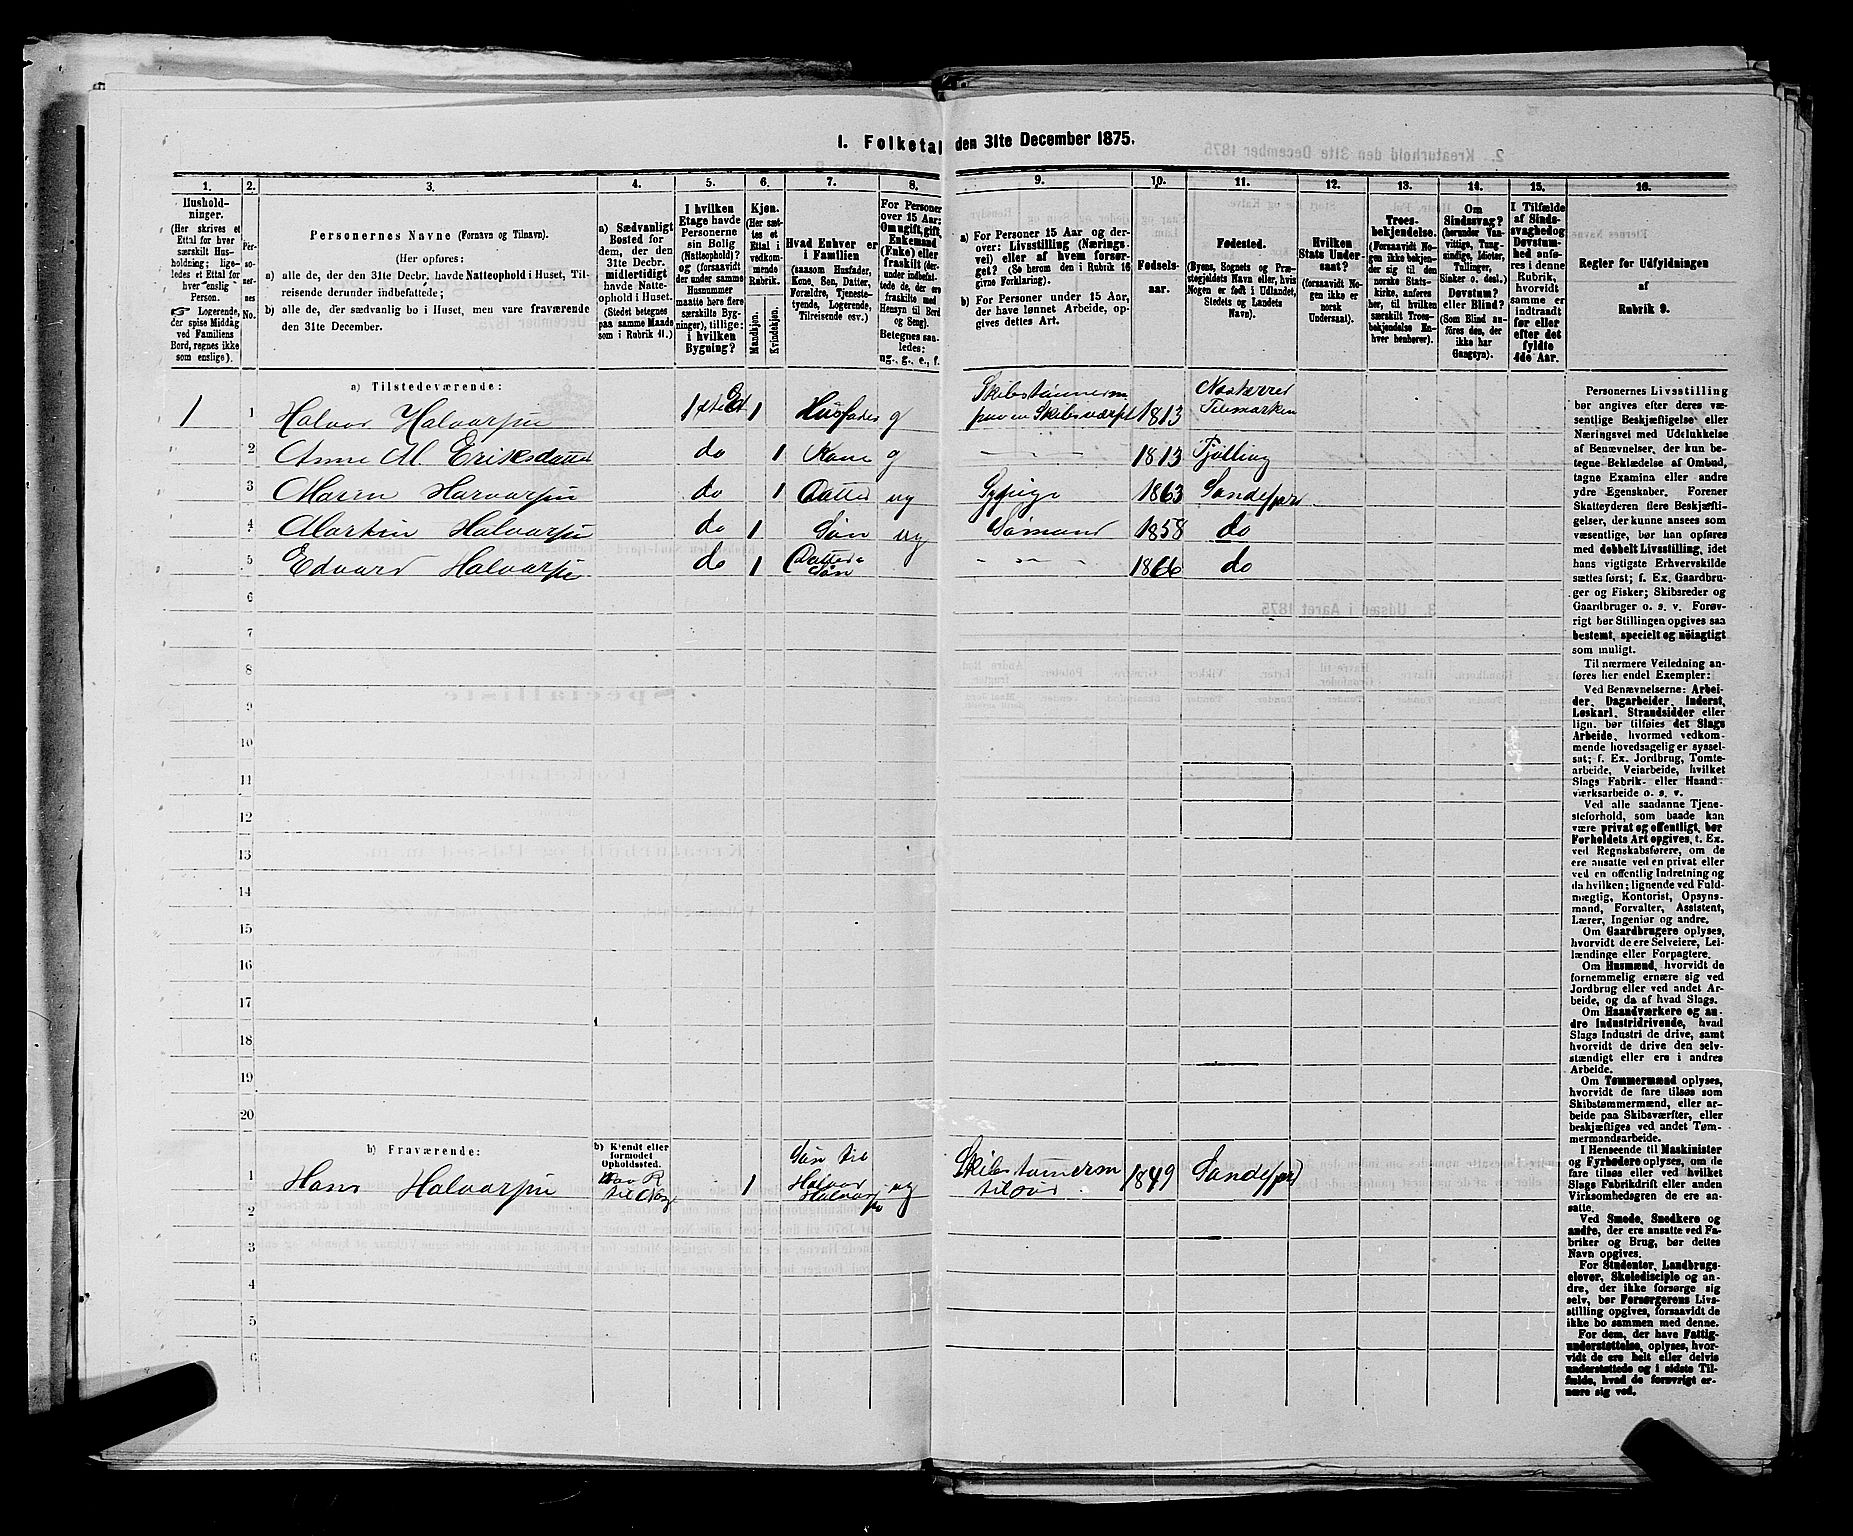 1. Folketal den 31te December 1875.
1. 2. 3. 4. 5. 6. 7. 8. 9. 10. 11. 12. 13. 14. 15. 16.
Husholdninger.
(Her skrives et
Ettal for hver
særskilt Husholdning;
ligeledes et Ettal for
hver enslig
Person.
Logerende,
der spise Middag
ved Familiens
Bord, regnes ikke
som enslige).
Personernes No.
Personernes Navne (Fornavn og Tilnavn).
(Her opføres:
a) alle de, der den 31te Decbr. havde Natteophold i Huset, Tilreisende
derunder indbefattede;
b) alle de, der sædvanlig bo i Huset, men vare fraværende
den 31te December.
a) Sædvanligt
Bosted for
dem, der den
31te Decbr.
midlertidigt
havde Natteophold
i Huset.
(Stedet betegnes
paa samme Maade
som i Rubrik 11.)
I hvilken
Etage havde
Personerne
sin Bolig
(Natteophold)?
og (forsaavidt
der under samme
Husnummer
maatte høre flere
særskilte Bygninger),
tillige:
i hvilken
Bygning?
Kjøn.
(Her sættes
et
Ettal i
vedkommende
Rubrik.
Mandkjøn.
Kvindekjøn.
Hvad Enhver er
i Familien
(saasom Husfader,
Kone, Søn, Datter,
Forældre, Tjenestetyende,
Logerende,
Tilreisende osv.)
For Personer
over 15 Aar:
Om ugift, gift,
Enkemand
(Enke) eller
fraskilt (derunder
indbefattede
de, der ere
fraskilte med
Hensyn til Bord
og Seng).
Betegnes saaledes:
ug., g., e., f.
a) For Personer 15 Aar og derover:
Livsstilling (Næringsvei)
eller af hvem forsørget?
(Se herom den i Rubrik 16
givne Forklaring).
b) For Personer under 15 Aar,
der have lønnet Arbeide, opgives
dettes Art.
Fødselsaar.
Fødested.
(Byens, Sognets og Præstegjeldets
Navn eller, hvis
Nogen er født i Udlandet,
Stedets og Landets
Navn).
Hvilken
Stats Undersaat?
(forsaavidt Nogen
ikke er
norsk
Undersaat).
Troesbekjendelse.
(Forsaavidt Nogen
ikke bekjender
sig til den
norske Statskirke,
anføres
her, til hvilken
særskilt Troesbekjendelse
Enhver
henhører).
Om
Sindssvag?
(herunder Vanvittige,
Tungsindige,
Idioter,
Tullinger,
Sinker o. desl.)
Døvstum?
eller Blind?
(Som Blind anføres
den, der
ikke har
Gangsyn).
I Tilfælde
af Sindssvaghed
og
Døvstumhed
anføres
i denne
Rubrik,
hvorvidt
samme er
indtraadt
før eller
efter det
fyldte
4de Aar.
Regler for Udfyldningen
af
Rubrik 9.
a) Tilstedeværende:
1 1 Halvor Halvorsen 1ste 1 Husfader g Skibstømmerm paa en Skibsværft 1813 Tilemarken
2 Anne M. Eriksdatter do 1 Kone g 1813 Tjølling
3 Maren Harvorsen do 1 Datter ug 1863 Sandefjord
4 Martin Halvorsen do 1 Søn ug Sømand 1858 do
5 Edvard Halvorsen do 1 Datters Søn 1866 do
6
7
8
9
10
11
12
13
14
15
16
17
18
19
20
b) Fraværende:
b) Kjendt eller
formodet
Opholdssted.
1 Hans Halvorsen 1 Søn til Halvor Halvorsen ug Skibstømmerm tilsøs 1849 Sandefjord
2
3
4
5
6
Personernes Livsstilling
bør angives efter deres væsentlige
Beskjæftigelse eller
Næringsvei med Udelukkelse
af Benævnelser, der kun betegne
Beklædelse af Ombud,
tagne Examina eller andre
ydre Egenskaber. Forener
Skatteyderen flere Beskjæftigelser,
der kunne ansees som
væsentlige, bør han opføres
med dobbelt Livsstilling, idet
hans vigtigste Erhvervskilde
sættes først; f. Ex. Gaardbruger
og Fisker; Skibsreder og
Gaardbruger o. s. v. Forøvrigt
bør Stillingen opgives saa
bestemt, specielt og nöiagtigt
som muligt.
Til nærmere Veiledning anføres
her endel Exempler:
Ved Benævnelserne: Arbeider,
Dagarbeider, Inderst,
Løskarl, Strandsidder eller
lign. bør tilføies det Slags
Arbeide, hvormed vedkommende
hovedsagelig er sysselsat;
f. Ex. Jordbrug, Tomtearbeide,
Veiarbeide, hvilket
Slags Fabrik- eller Haandværksarbeide
o. s. v.
Ved alle saadanne Tjenesteforhold,
som baade kan
være privat og offentligt, bør
Forholdets Art opgives, t. Ex.
ved Regnskabsførere, om de
ere ansatte ved en privat eller
ved en offentlig Indretning og
da hvilken; lignende ved Fuldmægtig,
Kontorist, Opsynsmand,
Forvalter, Assistent,
Lærer, Ingeniør og andre.
Om Gaardbrugere oplyses,
hvorvidt de ere Selveiere, Leilændinge
eller Forpagtere.
Om Husmænd, hvorvidt de
fornemmelig ernære sig ved
Jordbrug eller ved andet Arbeide,
og da af hvad Slags.
Om Haandværkere og andre
Industridrivende, hvad
Slags Industri de drive, samt
hvorvidt de drive den selvstændigt
eller ere i andres
Arbeide.
Om Tømmermænd oplyses,
hvorvidt de fare tilsøs som
Skibstømmermænd, eller arbeide
paa Skibsværfter, eller
beskjæftiges ved andet Tømmermandsarbeide.
I Henseende til Maskinister
og Fyrbødere oplyses, om de
fare tilsøs eller ved hvilket
Slags Fabrikdrift eller anden
Virksomhedsgren de ere ansatte.
Ved Smede, Snedkere og
andre, der ere ansatte ved Fabriker
og Brug, bør dettes
Navn opgives.
For Studenter, Landbrugselever,
Skoledisciple og andre,
der ikke forsørge sig
selv, bør Forsørgerens Livsstilling
opgives, forsaavidt de
ikke bo sammen med denne.
For dem, der have Fattigunderstøttelse,
oplyses, hvorvidt
de ere helt eller delvis
understøttede og i sidste Tilfælde,
hvad de forøvrigt ernære
sig ved.